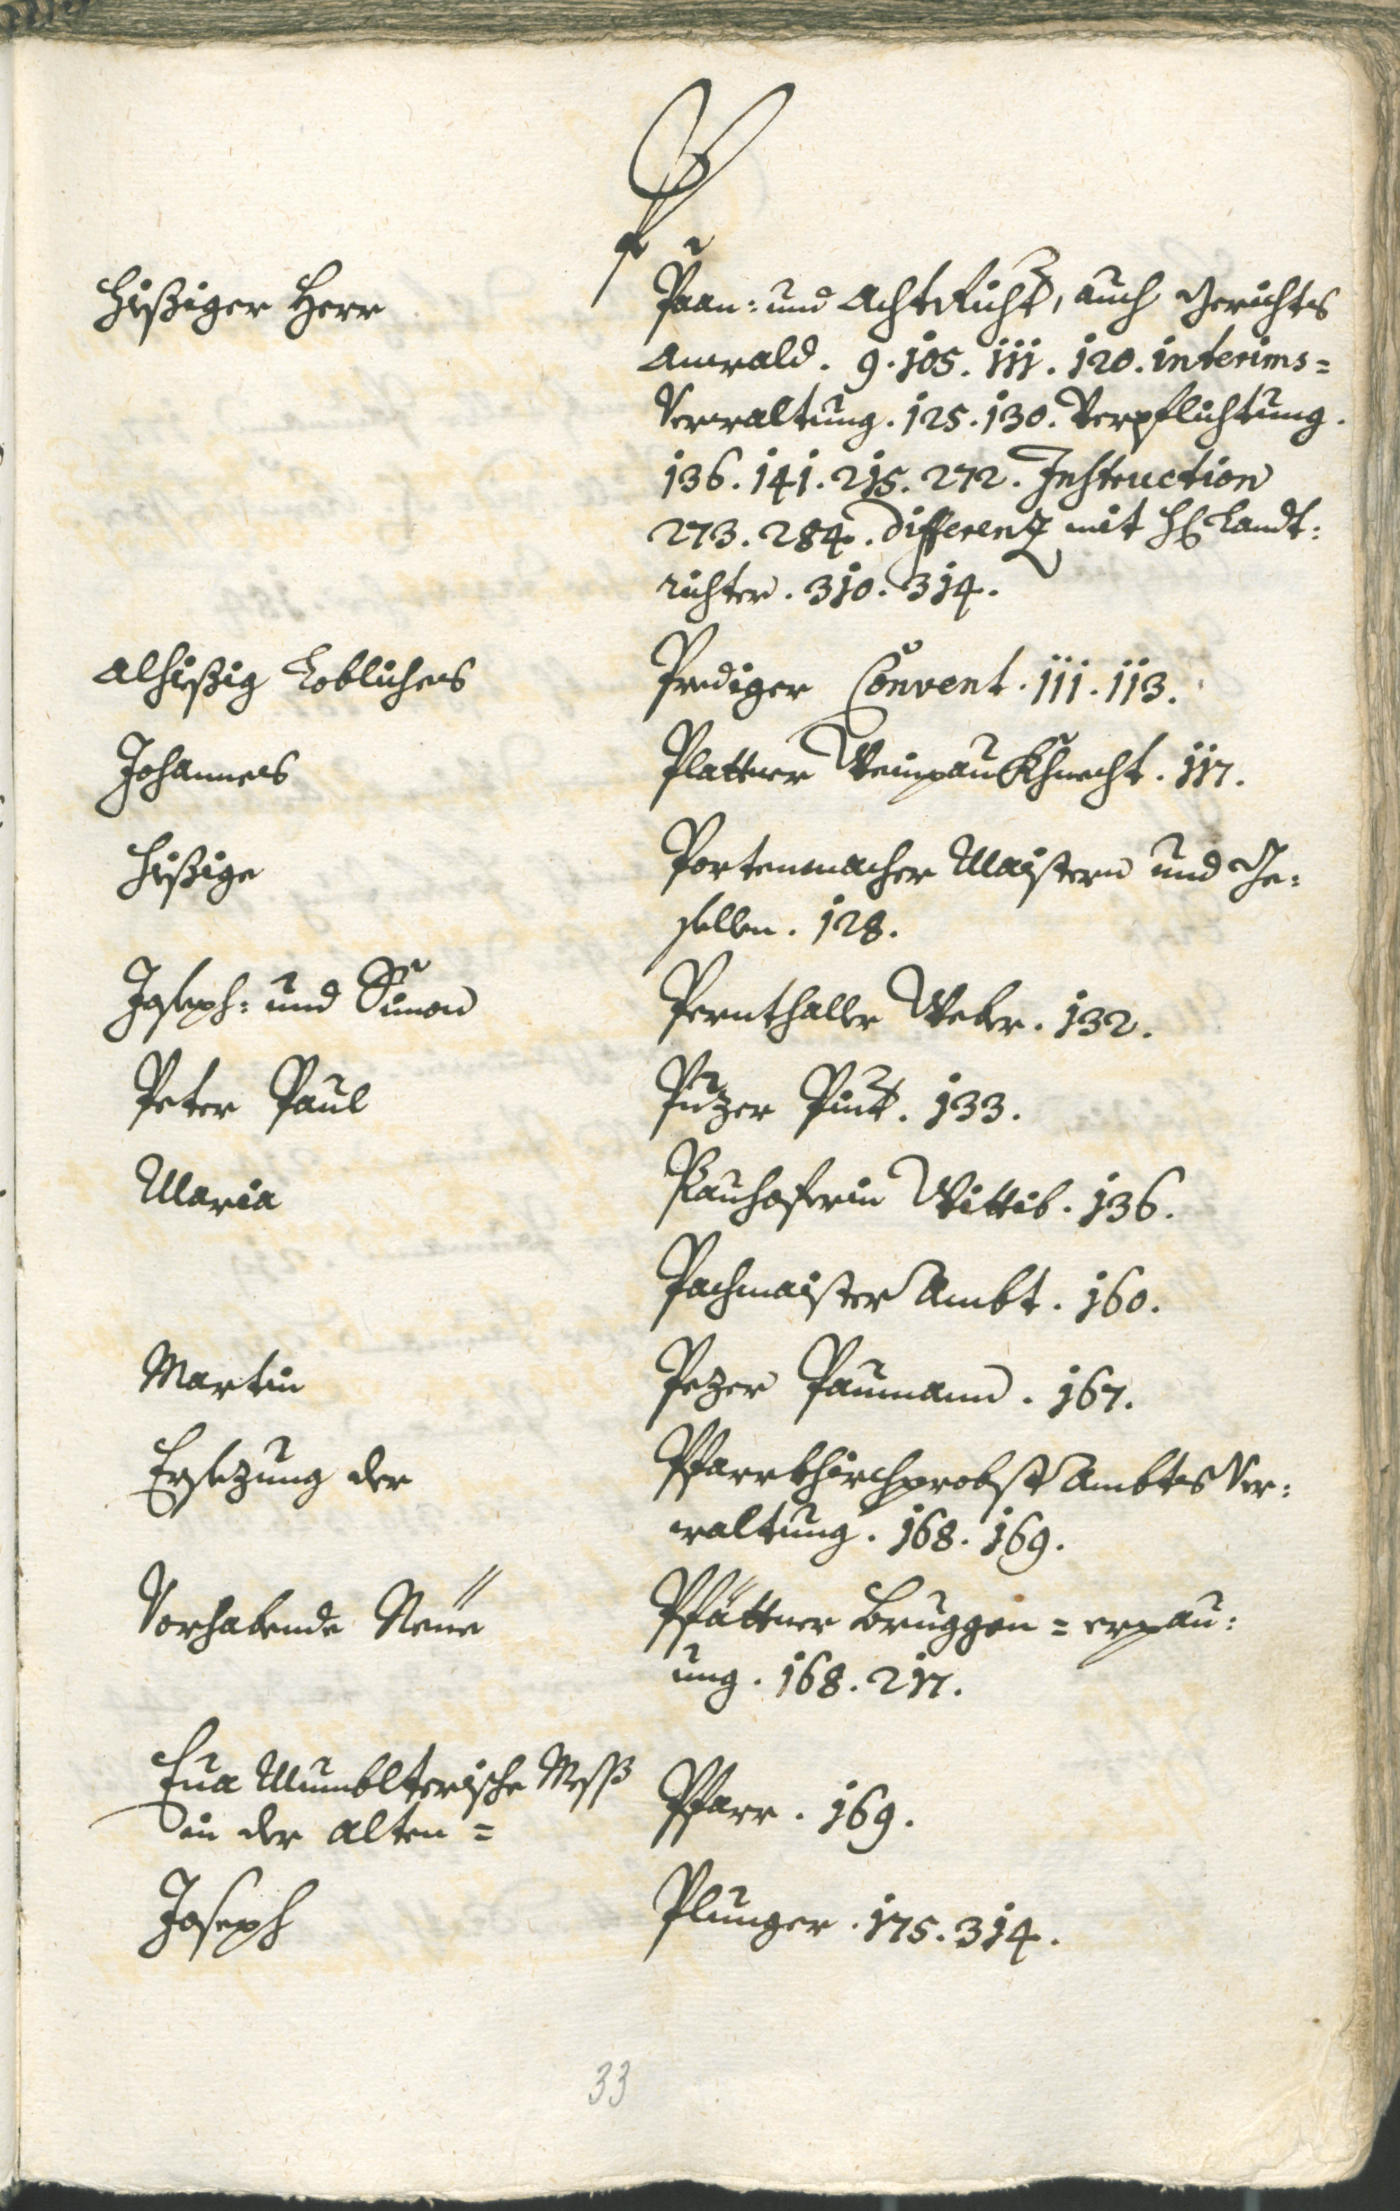 P
Hießiger Herr
Paan- und Achtricht, auch Gerichts
Anwald. 9. 105. 111. 120. interims=
Verwaltung. 125. 130. Verpflichtung.
136. 141. 215. 272. Instruction
273. 284. Differenz mit H: Landt:
richter. 310. 314.
Alhießig Lobliches
Prediger Convent. 111. 113.
Johannes
Plattner Weinpau Khnecht. 117.
Hießige
Portenmacher Maistern und Ge:
sellen. 128.
Joseph: und Simon
Pernthaller Weber. 132.
Peter Paul
Puzer 133.
Maria
Wittib. 136.
Pachmaister Ambt. 160.
Martin
Pezer Paumann. 167.
Ersezung der
Pfarrkhirchprobst Ambts Ver:
waltung. 168. 169.
Vorhabende Neüe
Pfättner Bruggen = erpau:
ung. 168. 217.
Eua Mumblterische Mess
in der alten =
Pfarr. 169.
Joseph
Plunger. 175. 314.
33